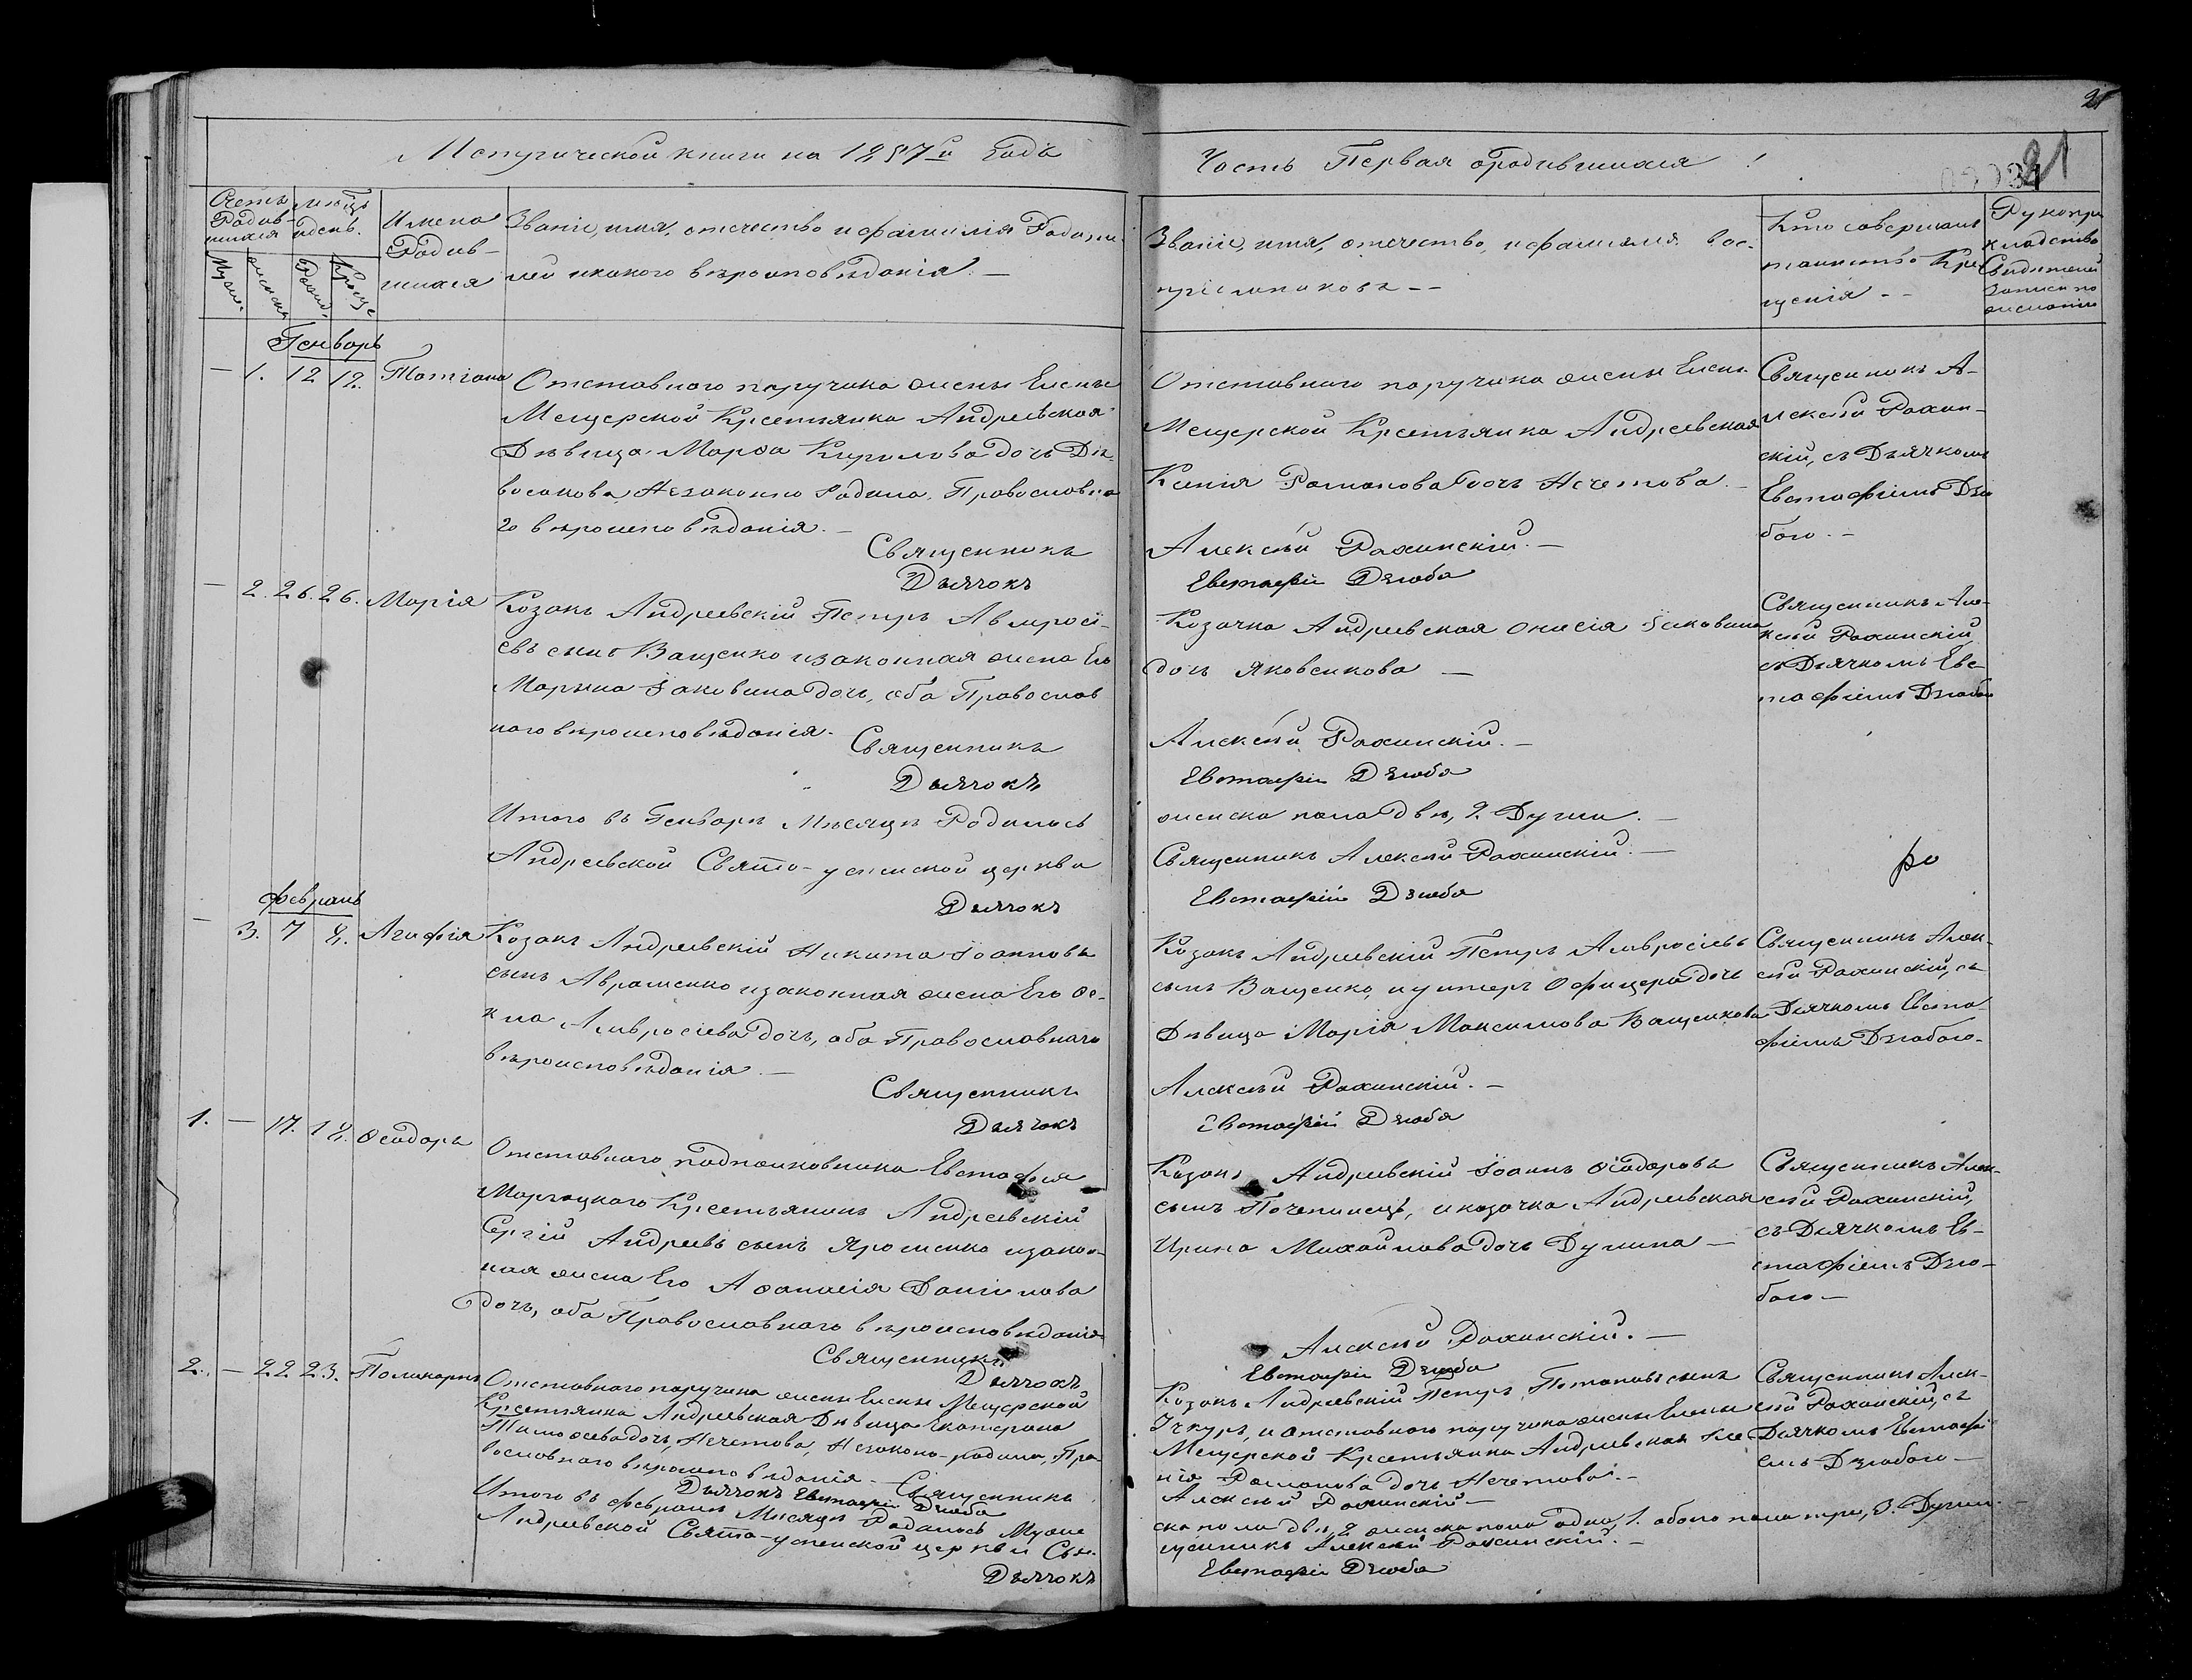 21
21
Метрической книги на 1857й Годъ
Часть Первая ородившихся
Счетъ Родившихся
мѣсяцъ и день.
Имена Родившихся
Званіе, имя, отечество и фамилія Родителей и какого вѣроисповѣданія. —
Званіе, имя, отечество, и фамилія воспріемниковъ — —
Кто совершалъ таинство Крещенія - -
Рукоприкладство Свидетелей записи по желанію
Мужес.
женска
Рожд.
Креще
Генварь
— 1. 12 12. Татіана
Отставного поручика жены Елены
Мещерской Крестьянка Андреевская
Дѣвица Марѳа Кирилова дочь Дѣ-
восакова, Незаконно Родила. Православна-
го вѣроисповѣданія. —
Священникъ
Дьячокъ
Отставного поручика жены Елены
Мещерской Крестьянка Андреевская
Ксенія Романова дочь Нечетова. —
Алексѣй Рахинскій. —
Евстафій Дзюба
Священникъ А-
лексѣй Рахин-
скій, съ Дьячкомъ
Евстафіемъ Дзю
бою. —
— 2. 26. 26. Марія
Козакъ Андреевскій Петръ Амвросі-
евъ сынъ Ващенко изаконная жена Его
Марьна Іаковлева дочь, оба Православ
наго вѣроисповѣданія.
Священникъ
Дьячокъ
Козачка Андреевская Онисія Іаковлева
дочь Яковенкова —
Алексѣй Рахинскій. —
Евстафій Дзюба
Священникъ Але-
ксѣй Рахинскій
съ Дьячкомъ Евс-
тафіемъ Дзюбою
Итого въ Генварѣ Мѣсяцѣ Родилось
женска пола двѣ, 2. Души. —
Андреевской Свято-успенской церкви
Священникъ Алексѣй Рахинскій. —
Дьячокъ
Евстафій Дзюба
февраль
— 3. 7 8. Агафія
Козакъ Андреевскій Никита Іоанновъ
сынъ Авраменко изаконная жена Его Ѳе-
кла Амвросіева дочь, оба Православнаго
вѣроисповѣданія. —
Священникъ
Дьячокъ
Козакъ Андреевскій Петръ Амвросіевъ
сынъ Ващенко, и унтеръ Офицера дочь
Дѣвица Марія Максимова Ващенкова
Алексѣй Рахинскій. —
Евстафій Дзюба
Священникъ Алек-
сѣй Рахинскій, съ
Дьячкомъ Евста-
фіемъ Дзюбою.
1. — 17. 18. Ѳеодоръ
Отставного подполковника Евстафія
Маргацкого Крестьянинъ Андреевскій
Сергій Андреевъ сынъ Яроменко изакон-
ная жена Его Аѳанасія Даніилова
дочь, оба Православнаго вѣроисповѣданія
Священникъ
Дьячокъ
Козакъ Андреевскій Іоаннъ Ѳеодоровъ
сынъ Почепинецъ, и козачка Андреевская
Ирина Михайлова дочь Дулина —
Алексѣй Рахинскій. —
Евстафій Дзюба
Священникъ Алек-
сѣй Рахинскій,
съ Дьячкомъ Ев-
стафіемъ Дзю-
бою —
2. — 22 23. Поликарпъ
Отставного поручика жены Елены Мещерской
Крестьянка Андреевская Дѣвица Екатерина
Тимоѳеева дочь, Нечетова, Незаконо-родила, Пра-
вославного вѣроисповѣданія. — Священникъ
Дьячокъ Евстафій Дзюба
Козакъ Андреевскій Петръ Потаповъ сынъ
Учкуръ, и отставного поручика жены Елены
Мещерской Крестьянка Андреевская Ксе-
нія Романова дочь Нечетова. —
Алексѣй Рахинскій —
Священникъ Алек-
сѣй Рахинскій, съ
Дьячкомъ Евстафі-
емъ Дзюбою —
Итого въ февралѣ Мѣсяцѣ Родилось Муже
ска пола двѣ, 2 женска пола одна, 1. обоего пола три, 3. Души. —
Андреевской Свято-успенской церкви Свя-
щенникъ Алексѣй Рахинскій. —
Дьячокъ
Евстафій Дзюба